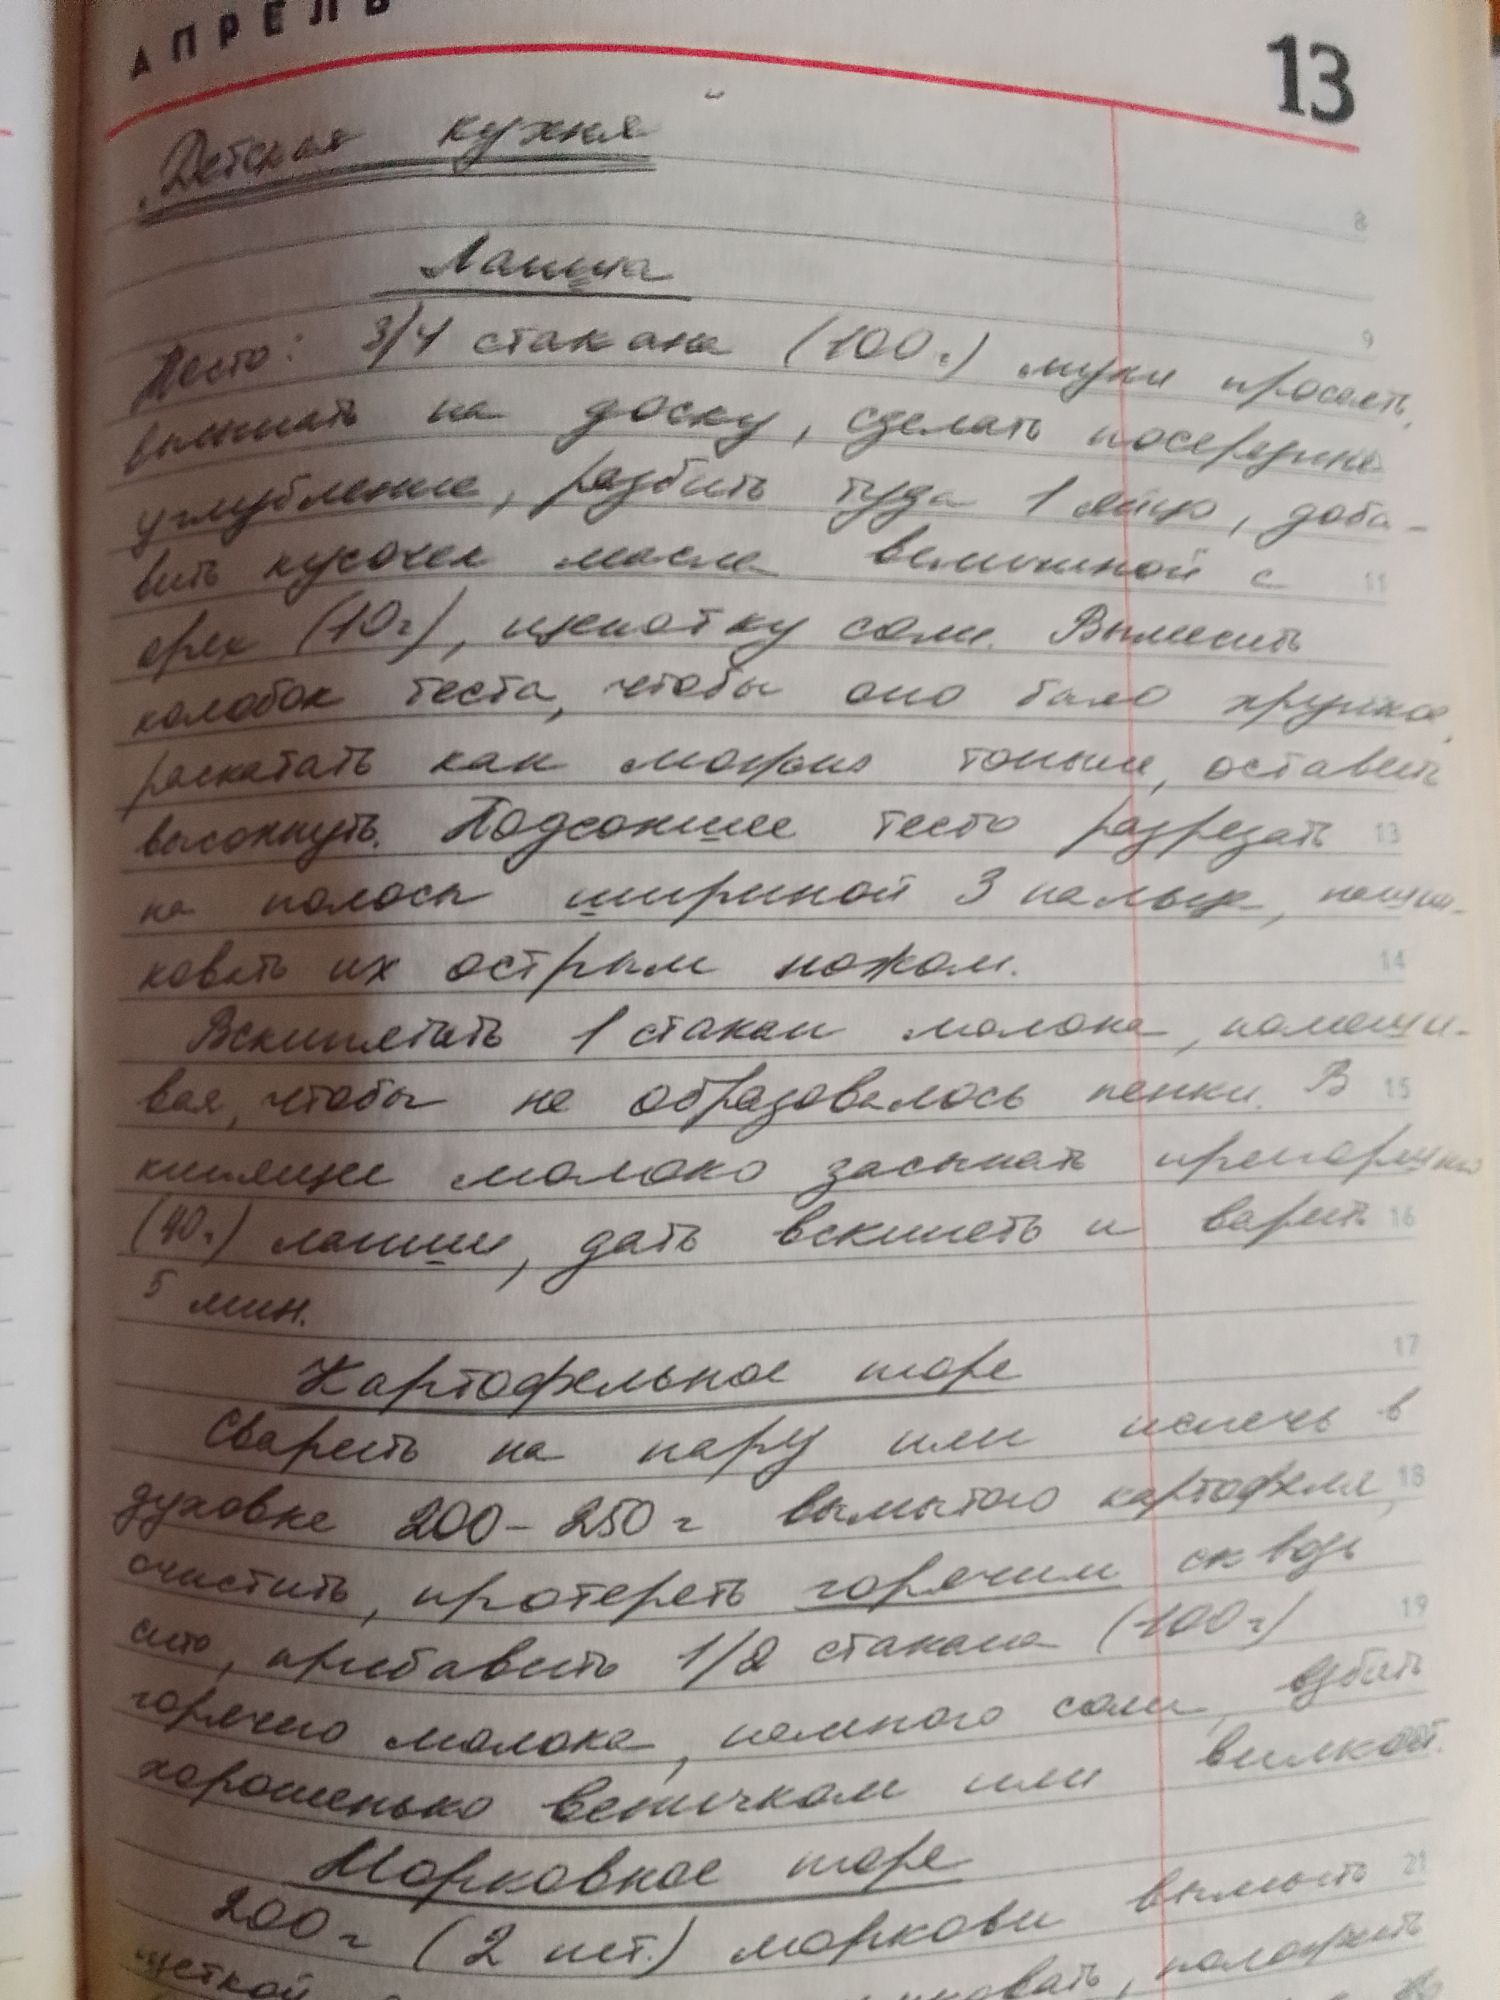 АПРЕЛЬ
13
Детская кухня
8
Лапша
9
Тесто: 3/4 стакана (100 г) муки просеять,
высыпать на доску, сделать посередине
углубление, разбить туда 1 яйцо, доба-
вить кусочек масла величиной с
11
орех (10 г), щепотку соли. Вымесить
колобок теста, чтобы оно было хрупкое,
раскатать как можно тоньше, оставить
высохнуть. Подсохшее тесто разрезать
13
на полосы шириной 3 пальца, нашин-
ковать их острым ножом.
14
Вскипятить 1 стакан молока, помеши-
вая, чтобы не образовалось пенки. В
15
кипящее молоко засыпать
(40 г) лапши, дать вскипеть и варить
16
5 мин.
17
Картофельное пюре
Сварить на пару или испечь в
духовке 200-250 г вымытого картофеля,
18
очистить, протереть горячим сквозь
сито, прибавить 1/2 стакана (100 г)
19
горячего молока, немного соли, взбить
хорошенько веничком или вилкой.
Морковное пюре
200 г (2 шт.) моркови вымыть
21
щеткой положить